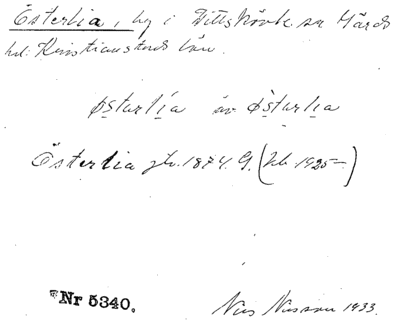 Österlia, by i Vittskövle sn Gärds
hd: Kristianstads län.
østarlia äv østarlia
Österlia jb. 1874. G. (Jb. 1925–)
Nr 5340.
Nils Nilsson 1933.